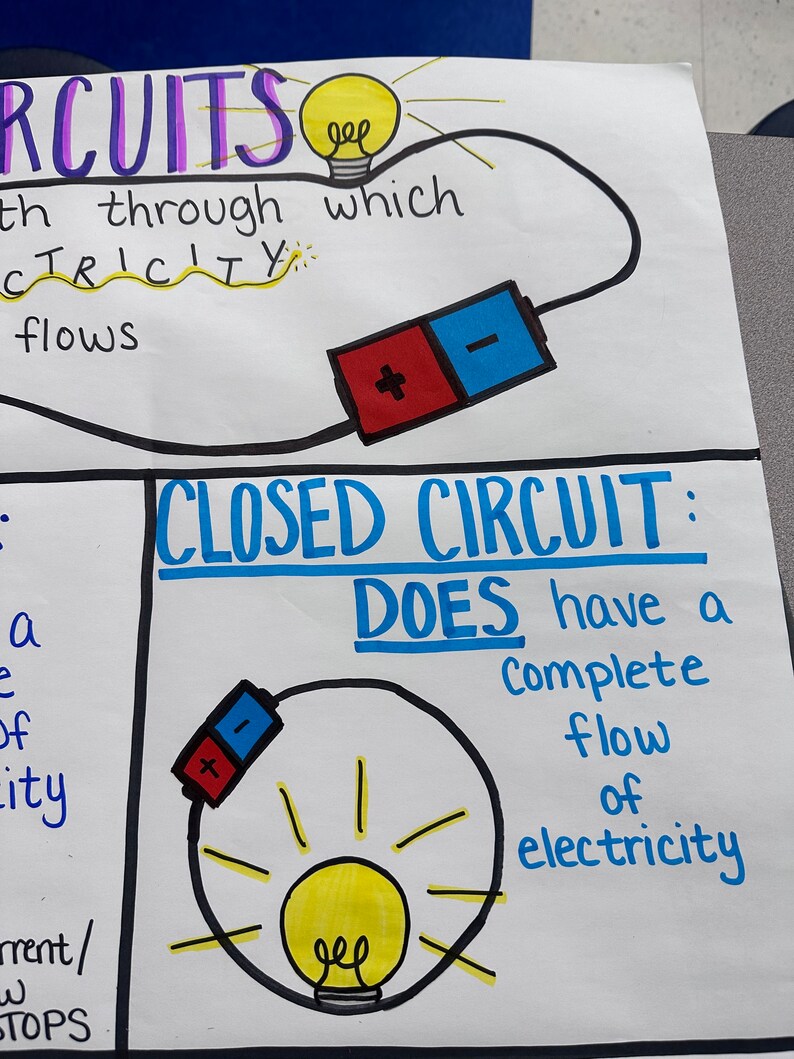 RCUITS
th through which
CTRICITY
flows
+ -
:
a
e
of
city
rrent/
W
STOPS
CLOSED CIRCUIT:
DOES have a
complete
flow
of
electricity
-
+